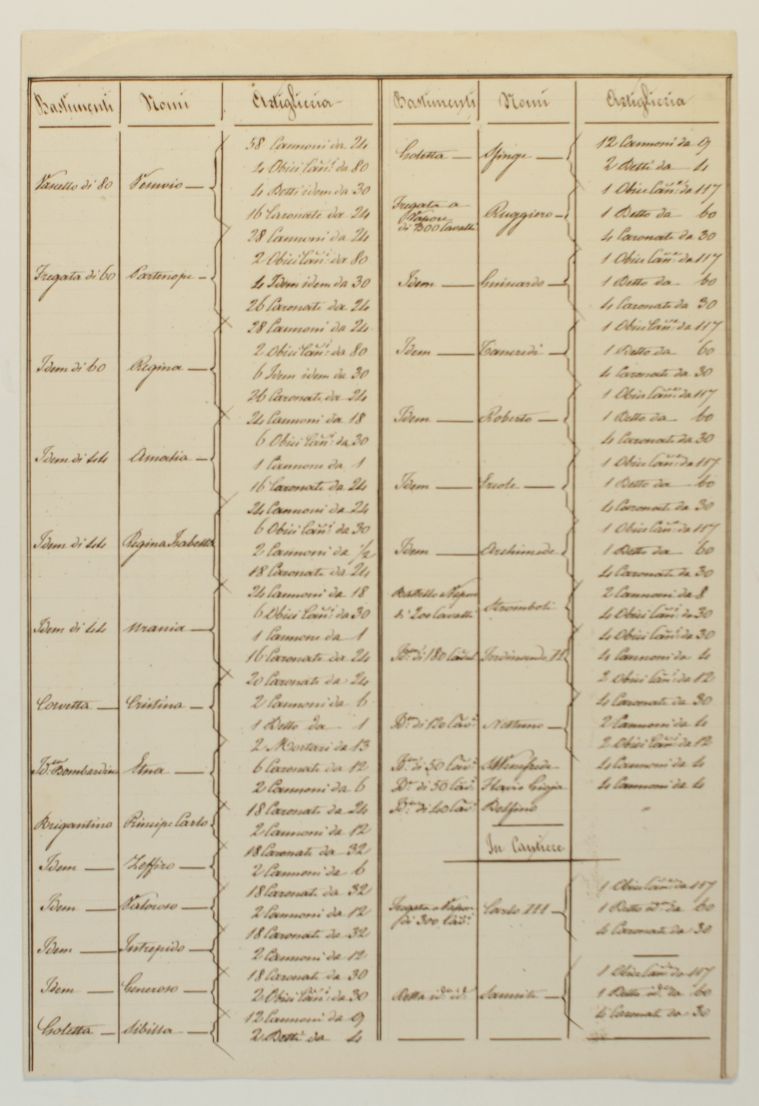 Bastimenti Nomi Artiglieria
Vascello di 80 Vesuvio
58 Cannoni da 24
4 Obici Can.i da 80
4 Detti idem da 30
16 Caronate da 24
Fregata di 60 Partenope
28 Cannoni da 24
2 Obici Can.i da 80
4 Idem idem da 30
26 Caronate da 24
Idem di 60 Regina
28 Cannoni da 24
2 Obici Can.i da 80
6 Idem idem da 30
26 Caronate da 24
Idem di 44 Amalia
24 Cannoni da 18
6 Obici Can.i da 30
1 Cannone da 1
16 Caronate da 24
Idem di 44 Regina Isabella
24 Cannoni da 24
6 Obici Can.i da 30
2 Cannoni da 1/2
18 Caronate da 24
Idem di 44 Urania
24 Cannoni da 18
6 Obici Can.i da 30
1 Cannone da 1
16 Caronate da 24
Corvetta Cristina
20 Caronate da 24
2 Cannoni da 6
1 Detto da 1
Id.m Bombardiera Etna
2 Mortari da 13
6 Caronate da 12
2 Cannoni da 6
Brigantino Principe Carlo
18 Caronate da 24
2 Cannoni da 12
Idem Zeffiro
18 Caronate da 32
2 Cannoni da 6
Idem Valoroso
18 Caronate da 32
2 Cannoni da 12
Idem Intrepido
18 Caronate da 32
2 Cannoni da 12
Idem Generoso
18 Caronate da 30
2 Obici Can.i da 30
Goletta Sibilla
12 Cannoni da 9
2 Detti da 4
Bastimenti Nomi Artiglieria
Goletta Sfinge
12 Cannoni da 9
2 Detti da 4
Fregata a
Vapore
di 300 Cavalli
Ruggiero
1 Obice Can.e da 117
1 Detto da 60
4 Caronate da 30
Idem Guiscardo
1 Obice Can.e da 117
1 Detto da 60
4 Caronate da 30
Idem Tancredi
1 Obice Can.e da 117
1 Detto da 60
4 Caronate da 30
Idem Roberto
1 Obice Can.e da 117
1 Detto da 60
4 Caronate da 30
Idem Ercole
1 Obice Can.e da 117
1 Detto da 60
4 Caronate da 30
Idem Archimede
1 Obice Can.e da 117
1 Detto da 60
4 Caronate da 30
Battello a Vapore
di 200 Cavalli
Stromboli
2 Cannoni da 8
4 Obici Can.i da 30
D.o di 180 Cavalli Ferdinando II
4 Obici Can.i da 30
4 Cannoni da 4
2 Obici Can.i da 12
D.o di 120 Cav.i Nettuno
4 Caronate da 30
2 Cannoni da 4
2 Obici Can.i da 12
D.o di 50 Cav.i 4 Cannoni da 4
D.o di 50 Cav.i Flavio Gioja 4 Cannoni da 4
D.o di 40 Cav.i Delfino "
In Cantiere
Fregata a Vapore
di 300 Cav.i
Carlo III
1 Obice Can.e da 117
1 Detto id.m da 60
4 Caronate da 30
Detta id.m id.m Sannita
1 Obice Can.e da 117
1 Detto id.m da 60
4 Caronate da 30